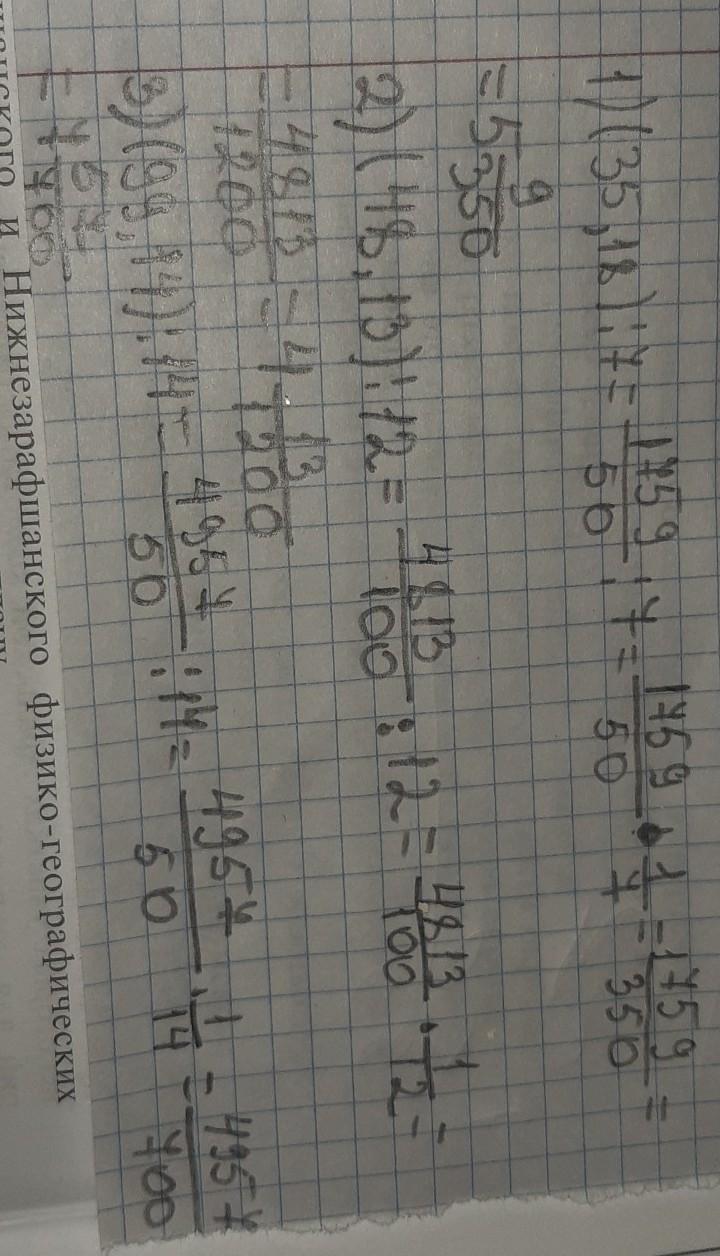 1) (35,18):7=1759/50:7=1759/50·1/7=1759/350=
=5 9/350
2) (48,13):12=4813/100:12=4813/100·1/12=
=4813/1200=4 13/1200
3) (99,14):14=4957/50:14=4957/50·1/14=4957/700
=7 57/700
и Нижнезарафшанского физико-географических